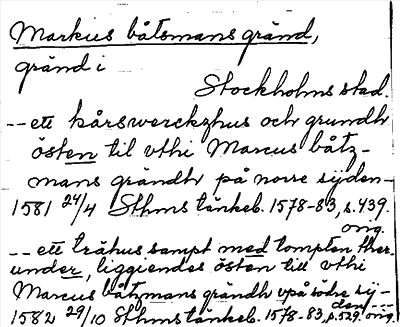 Markus båtsmans gränd,
gränd i
Stockholms stad.
-- ett kårswerckzhus och grundh
östen til vthi Marcus båtz-
mans grändh på norre sijden--
1581 24/4 Sthms tänkeb. 1578-83, s. 439.
orig.
-- ett trähus sampt med tompten ther
under, liggiendes östen till vthi
Marcus båtzmans grändh vpå södre sij-
den ---
1582 29/10 Sthms tänkeb. 1578-83, p. 529. orig.